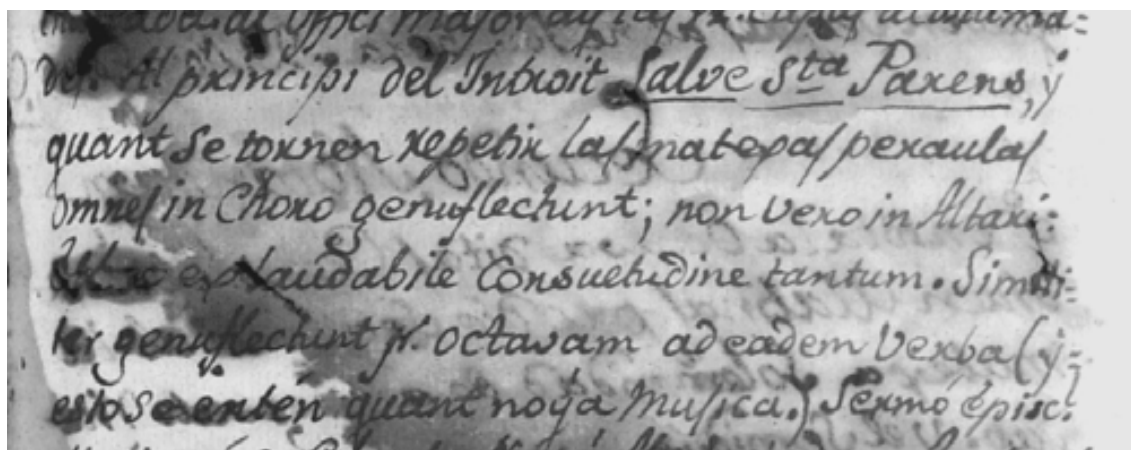 offici major
des. Al principi del Introit Salve Sta Parens, y
quant se tornen repetir las matexas peraulas
omnes in Choro genuflectunt; non vero in Altari:
ex laudabile Consuetudine tantum. Simili-
ter genuflectunt pr. octavam ad eadem verba (y
esto se entén quant noy a Musica.) Sermó episc.